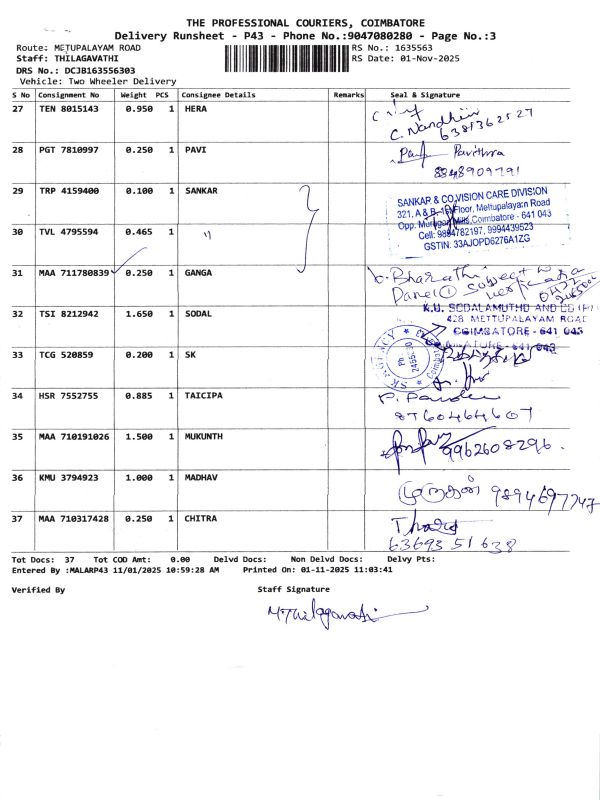 THE PROFESSIONAL COURIERS, COIMBATORE
Delivery Runsheet - P43 - Phone No.:9047080280 - Page No.:3
Route: METUPALAYAM ROAD RS No.: 1635563
Staff: THILAGAVATHI RS Date: 01-Nov-2025
DRS No.: DCJB163556303
Vehicle: Two Wheeler Delivery
S No Consignment No Weight PCS Consignee Details Remarks Seal & Signature
27 TEN 8015143 0.950 1 HERA
C. Nandhini
6381362527
28 PGT 7810997 0.250 1 PAVI
Pavithra
8848909791
29 TRP 4159400 0.100 1 SANKAR
SANKAR & CO.VISION CARE DIVISION
321, A & B, Floor, Mettupalayam Road
Opp. Murugan Mills, Coimbatore - 641 043
Cell: 9884782197, 9994439523
GSTIN. 33AJOPD6276A1ZG
30 TVL 4795594 0.465 1 "
31 MAA 711780839 0.250 1 GANGA
Bharathi subject to
32 TSI 8212942 1.650 1 SODAL
K.U. SODALAMUTHU AND CO (P)
428 METTUPALAYAM ROAD
COIMBATORE - 641 043
33 TCG 520859 0.200 1 SK
SK AGENCY
Coimbatore
34 HSR 7552755 0.885 1 TAICIPA
8760464607
35 MAA 710191026 1.500 1 MUKUNTH
9962608296.
36 KMU 3794923 1.000 1 MADHAV
முருகன் 9894697747
37 MAA 710317428 0.250 1 CHITRA
63693 51638
Tot Docs: 37 Tot COD Amt: 0.00 Delvd Docs: Non Delvd Docs: Delvy Pts:
Entered By :MALARP43 11/01/2025 10:59:28 AM Printed On: 01-11-2025 11:03:41
Verified By Staff Signature
M.Thilagavathi